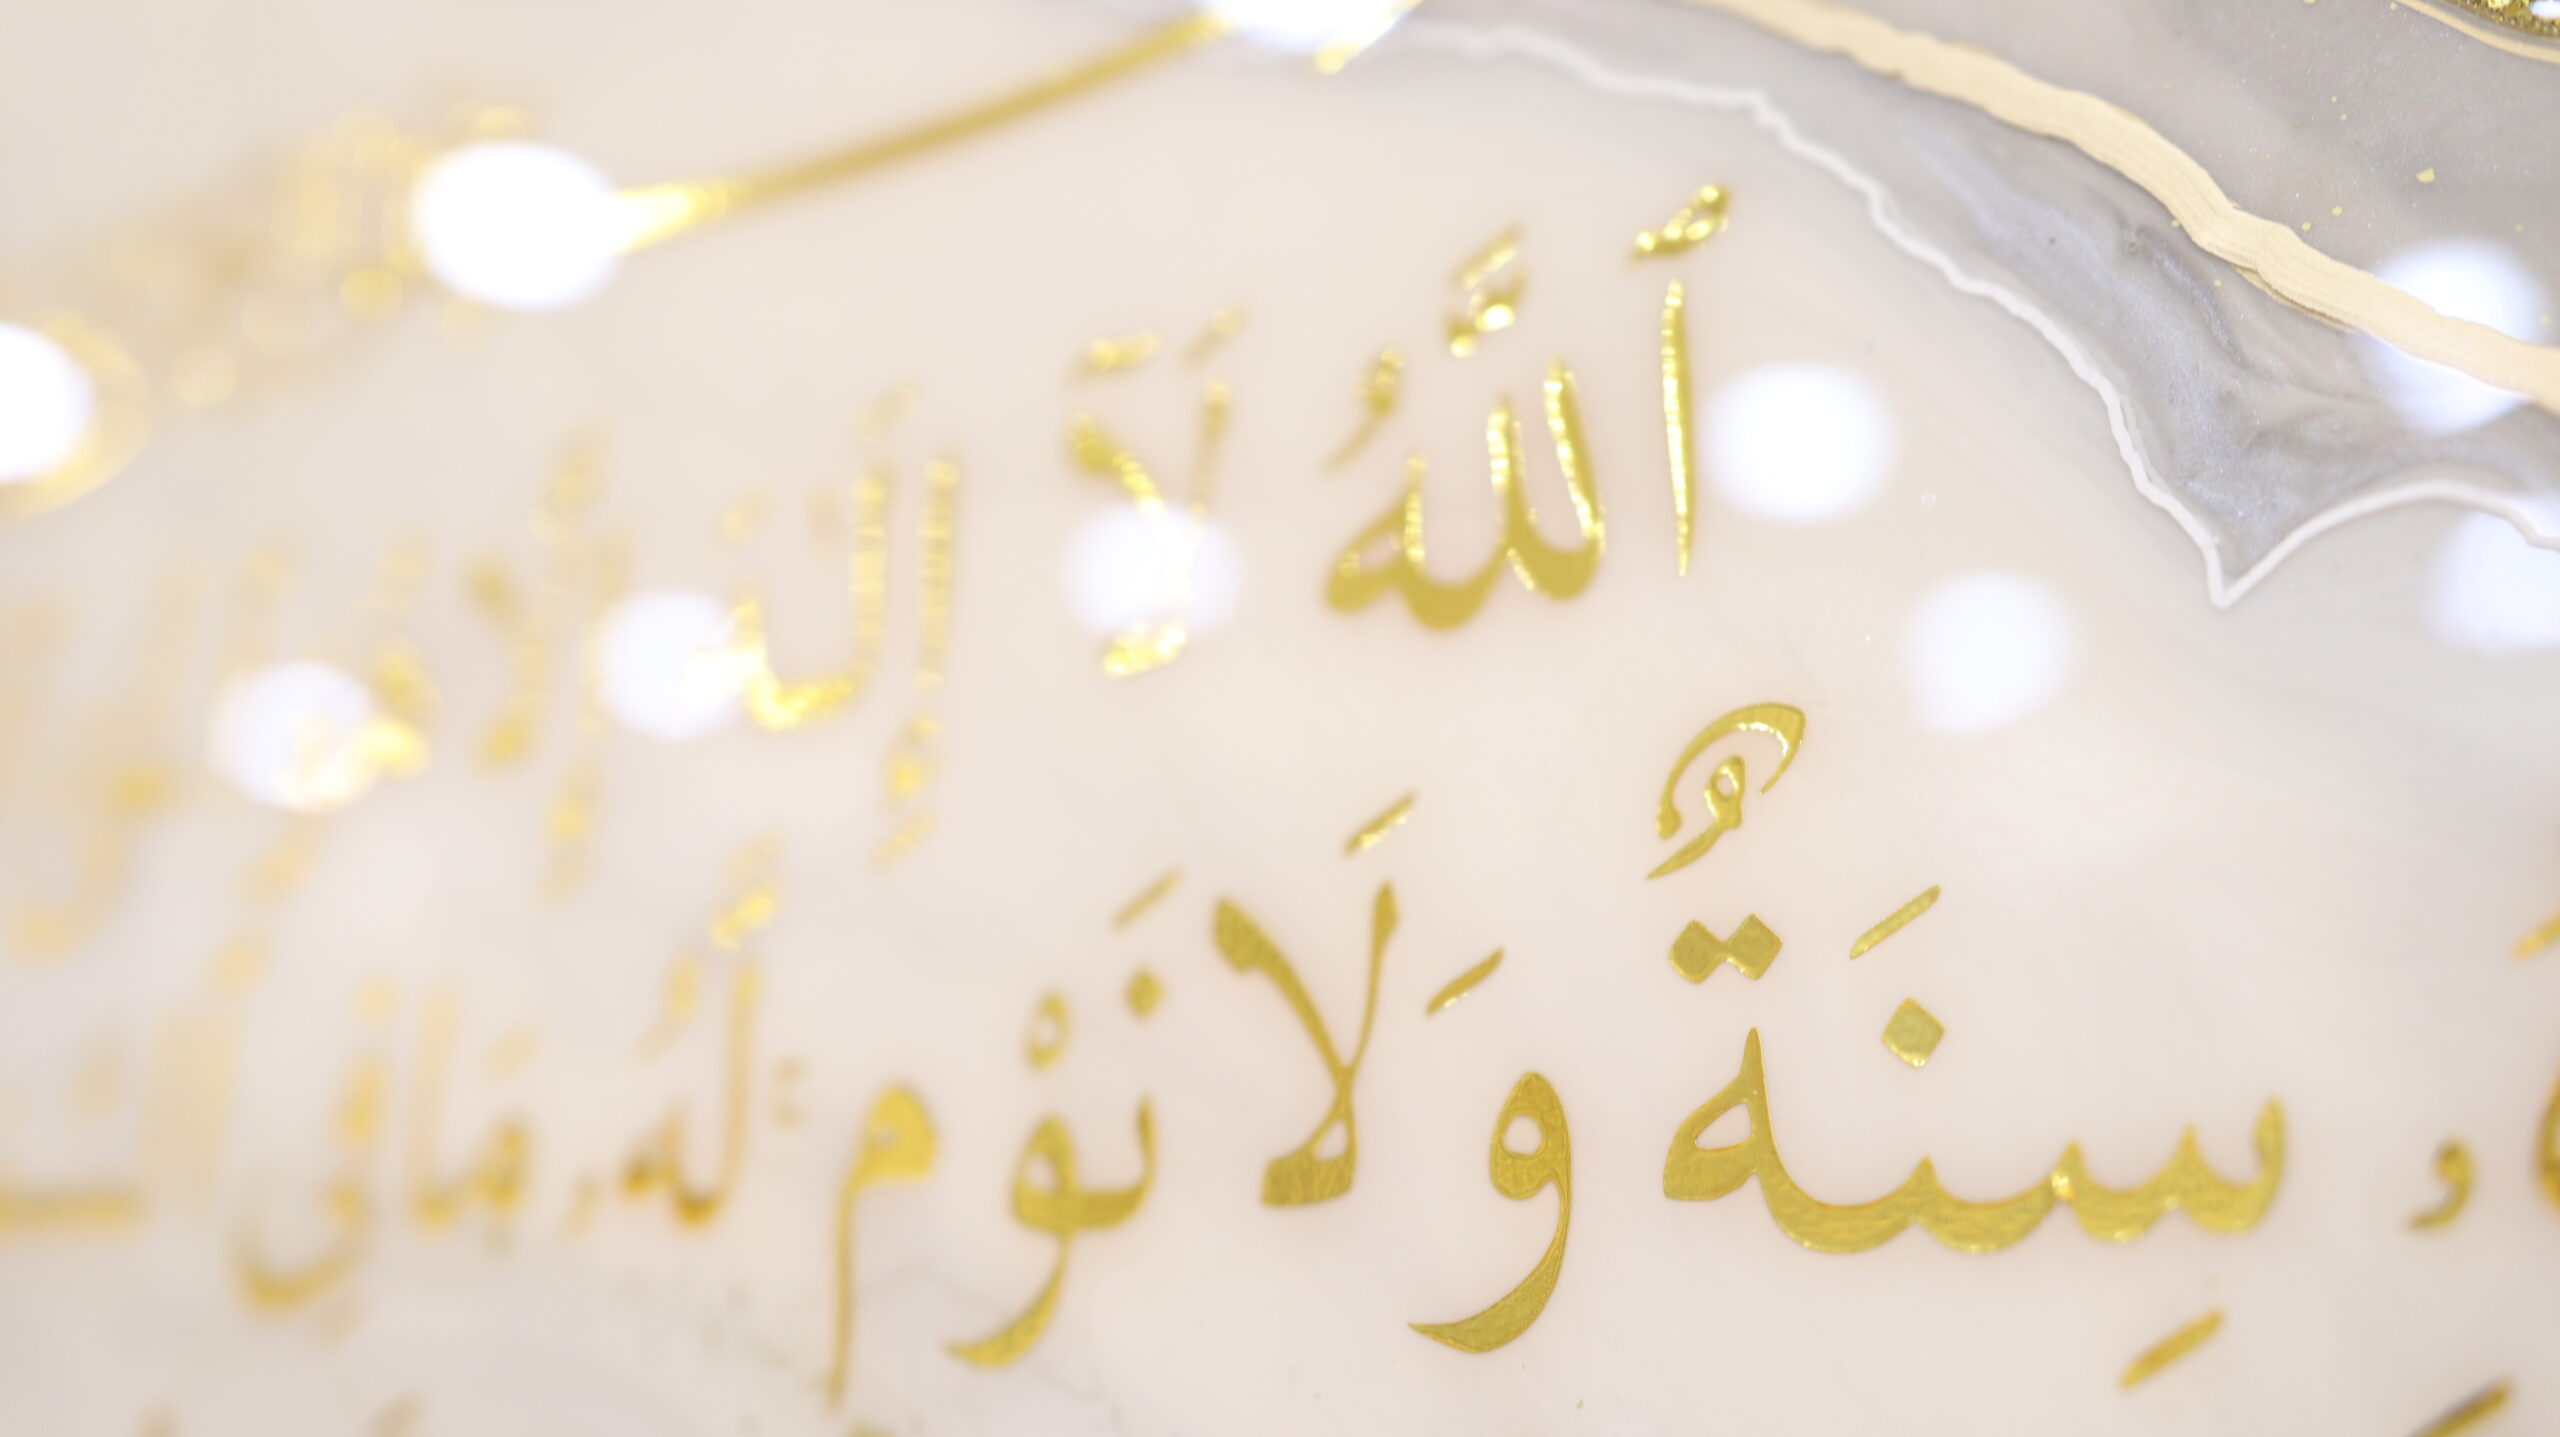 اَللَّهُ لَآ إِلَـٰهَ إِلَّا هُوَ
سِنَةٌ وَلَا نَوْم لَّهُۥ مَا فِي